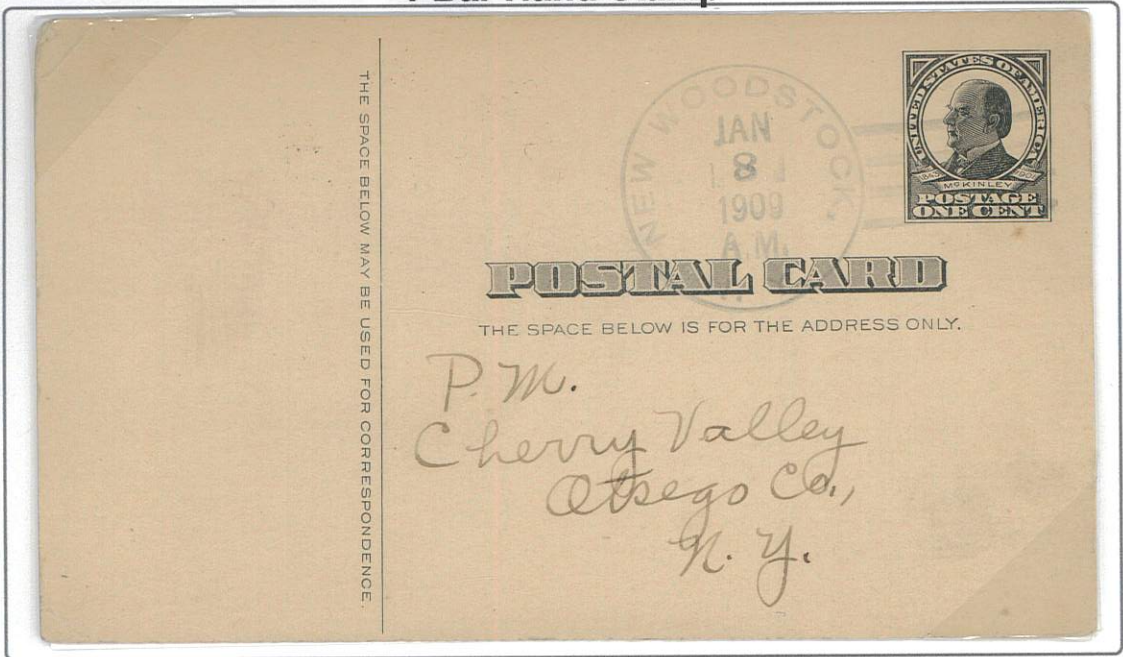 THE SPACE BELOW MAY BE USED FOR CORRESPONDENCE.
NEW WOODSTOCK,
JAN
8
1909
A.M.
UNITED STATES OF AMERICA
1843 1901
McKINLEY
POSTAGE
ONE CENT
POSTAL CARD
THE SPACE BELOW IS FOR THE ADDRESS ONLY.
P. M.
Cherry Valley
Otsego Co.,
N. Y.